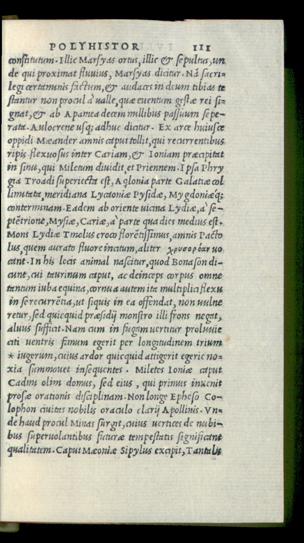 POLYHISTOR III
constitutum. Illic Marsyas ortus, illic & sepultus, un
de qui proximat fluuius, Marsyas dicitur. Nã sacri-
legi certaminis factum, & audaces in deum tibias te
stantur non procul à valle, quæ euentum gestæ rei si-
gnat, & ab Apamea decem millibus passuum sepe-
rata Aulocrene usq; adhuc dicitur. Ex arce huiusce
oppidi Mæander amnis caput tollit, qui recurrentibus
ripis flexuosus inter Cariam, & Ioniam præcipitat
in sinu, qui Miletum diuidit, et Priennem. Ipsa Phry
gia Troadi superiecta est, Aglonia parte Galatiæ col
limitata, meridiana Lycaoniæ Pysidæ, Mygdoniæq;
conterminam. Eadem ab oriente uicina Lydiæ, à se-
ptẽtrione, Mysiæ, Cariæ, à parte qua dies medius est.
Mons Lydiæ Tmolus croco florẽtissimus, amnis Pacto
lus, quem aurato fluore incitum, aliter χρυσορόαν uo
cant. In his locis animal nascitur, quod Bonason di-
cunt, cui taurinum caput, ac deinceps corpus omne
tantum iuba equina, cornua autem ita multiplici flexu
in se recurrẽtia, ut siquis in ea offendat, non vulne
retur, sed quicquid præsidij monstro illi frons negat,
aluus sufficit. Nam cum in fugam uertitur proluuie
citi uentris fimum egerit per longitudinem trium
* iugerum, cuius ardor quicquid attigerit egerie no-
xia summouet insequentes. Miletes Ioniæ caput
Cadmi olim domus, sed eius, qui primus inuenit
prosæ orationis disciplinam. Non longe Epheso Co-
lophon ciuites nobilis oraculo clarij Apollinis. Vn-
de haud procul Mimas surgit, cuius uertices de nubi-
bus superuolantibus futuræ tempestatis significant
qualitatem. Caput Mæoniæ Sipylus excipit, Tantalis